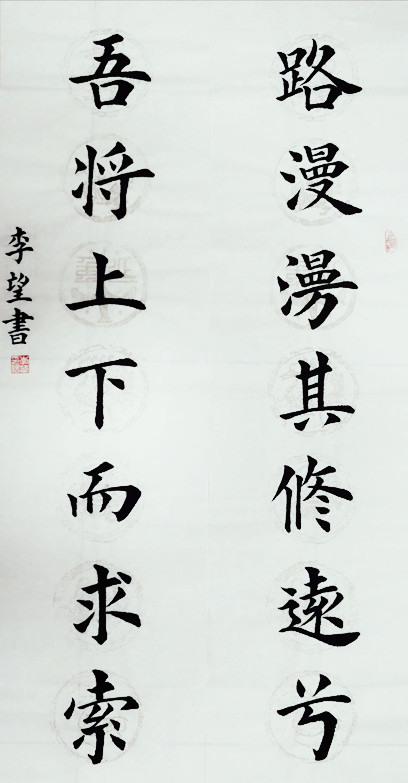 路漫漫其修遠兮
吾将上下而求索
李望書